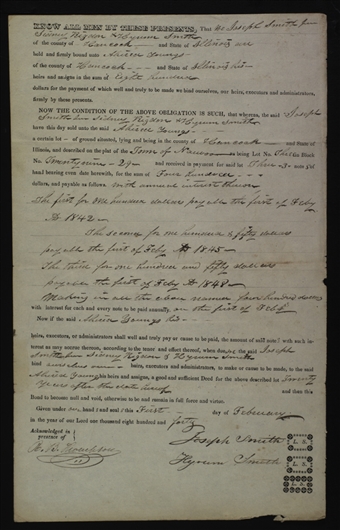 KNOW ALL MEN BY THESE PRESENTS, That We Joseph Smith Junr
Sidney Rigdon & Hyrum Smith
of the county of Hancock and State of Illinois are
held and firmly bound unto Alvira
of the county of Hancock and State of Illinois his
heirs and assigns in the sum of Eight hundred
dollars for the payment of which well and truly to be made we bind ourselves, our heirs, executors and administrators,
firmly by these presents.
NOW THE CONDITION OF THE ABOVE OBLIGATION IS SUCH, that whereas, the said Joseph
Smith Jun Sidney Rigdon & Hyrum Smith
have this day sold unto the said
a certain lot of ground situated, lying and being in the county of Hancock State of
Illinois, and described on the plat of the Town of Nauvoo being Lot No. Block
No. and received in payment for said lot Three 3 notes of
hand bearing even date herewith, for the sum of Four hundred
dollars, and payable as follows. with annual interest thereon
The first for one hundred dollars payable the first of Feby
AD 1842
The second for one hundred & fifty dollars
payable the first of Feby AD 1845
The third for one hundred and fifty dollars
payable the first of Feby AD 1848
Making in all the clear four hundred dollars
with interest for each and every note to be paid annually, on the first of Feby
Now if the said his
heirs, executors, or administrators shall well and truly pay or cause to be paid, the amount of said notes with such in-
terest as may accrue thereon, according to the tenor and effect thereof, when due, the said Joseph
Smith Jun Sidney Rigdon & Hyrum Smith
bind heirs, executors, administrators, to make or cause to be made, to the said
his heirs and assigns, a good and sufficient Deed for the above described lot Twenty
Years after the date hereof and then this
Bond to become null and void, otherwise to be and remain in full force and virtue.
Given under our hand and seal this First day of February
in the year of our Lord one thousand eight hundred and forty
Acknowledged in
presence of
Joseph Smith L. S.
Thompson
Hyrum Smith L. S.
L. S.